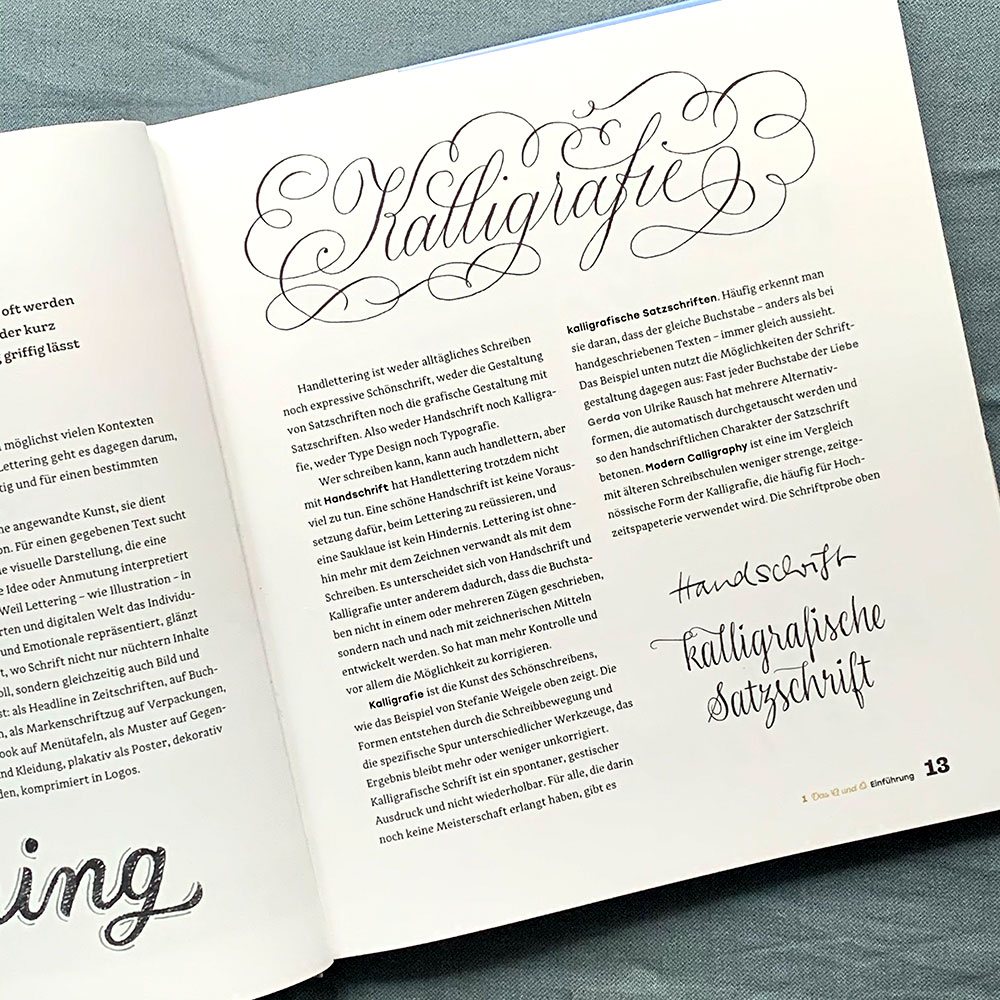 oft werden
der kurz
griffig lässt
möglichst vielen Kontexten
Lettering geht es dagegen darum,
und für einen bestimmten
angewandte Kunst, sie dient
Für einen gegebenen Text sucht
visuelle Darstellung, die eine
Idee oder Anmutung interpretiert
Weil Lettering – wie Illustration – in
und digitalen Welt das Individu-
und Emotionale repräsentiert, glänzt
wo Schrift nicht nur nüchtern Inhalte
sondern gleichzeitig auch Bild und
als Headline in Zeitschriften, auf Buch-
als Markenschriftzug auf Verpackungen,
auf Menütafeln, als Muster auf Gegen-
und Kleidung, plakativ als Poster, dekorativ
komprimiert in Logos.
ing
Kalligrafie
Handlettering ist weder alltägliches Schreiben
noch expressive Schönschrift, weder die Gestaltung
von Satzschriften noch die grafische Gestaltung mit
Satzschriften. Also weder Handschrift noch Kalligra-
fie, weder Type Design noch Typografie.
Wer schreiben kann, kann auch handlettern, aber
mit Handschrift hat Handlettering trotzdem nicht
viel zu tun. Eine schöne Handschrift ist keine Voraus-
setzung dafür, beim Lettering zu reüssieren, und
eine Sauklaue ist kein Hindernis. Lettering ist ohne-
hin mehr mit dem Zeichnen verwandt als mit dem
Schreiben. Es unterscheidet sich von Handschrift und
Kalligrafie unter anderem dadurch, dass die Buchsta-
ben nicht in einem oder mehreren Zügen geschrieben,
sondern nach und nach mit zeichnerischen Mitteln
entwickelt werden. So hat man mehr Kontrolle und
vor allem die Möglichkeit zu korrigieren.
Kalligrafie ist die Kunst des Schönschreibens,
wie das Beispiel von Stefanie Weigele oben zeigt. Die
Formen entstehen durch die Schreibbewegung und
die spezifische Spur unterschiedlicher Werkzeuge, das
Ergebnis bleibt mehr oder weniger unkorrigiert.
Kalligrafische Schrift ist ein spontaner, gestischer
Ausdruck und nicht wiederholbar. Für alle, die darin
noch keine Meisterschaft erlangt haben, gibt es
kalligrafische Satzschriften. Häufig erkennt man
sie daran, dass der gleiche Buchstabe – anders als bei
handgeschriebenen Texten – immer gleich aussieht.
Das Beispiel unten nutzt die Möglichkeiten der Schrift-
gestaltung dagegen aus: Fast jeder Buchstabe der Liebe
Gerda von Ulrike Rausch hat mehrere Alternativ-
formen, die automatisch durchgetauscht werden und
so den handschriftlichen Charakter der Satzschrift
betonen. Modern Calligraphy ist eine im Vergleich
mit älteren Schreibschulen weniger strenge, zeitge-
nössische Form der Kalligrafie, die häufig für Hoch-
zeitspapeterie verwendet wird. Die Schriftprobe oben
Handschrift
kalligrafische
Satzschrift
1 Das A und O Einführung 13